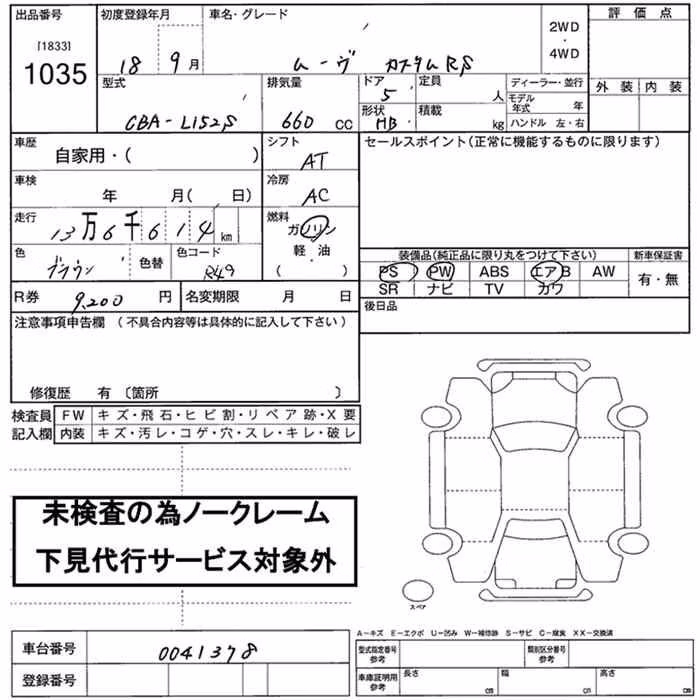 出品番号 初度登録年月 車名・グレード 2WD ・ 4WD 評価点
[1833]
1035 18 9月 ムーヴ カスタムRS
型式 排気量 ドア 定員 ディーラー・並行 外装 内装
5 人 モデル年式 年
CBA-L152S 660 CC 形状 積載 ハンドル 左・右
HB kg
車歴 シフト セールスポイント(正常に機能するものに限ります)
自家用・( ) AT
車検 冷房
年 月( 日) AC
走行 燃料
13万6千614km ガソリン
軽・油
( )
色 色替 色コード 装備品(純正品に限り丸をつけて下さい) 新車保証書
ブラウン R49 PS PW ABS エアB AW 有・無
SR ナビ TV カワ
R券 9,200円 名変期限 月 日 後日品
注意事項申告欄 (不具合内容等は具体的に記入して下さい)
修復歴 有〔箇所 〕
検査員 FW キズ・飛石・ヒビ割・リペア跡・X要
記入欄 内装 キズ・汚レ・コゲ・穴・スレ・キレ・破レ
未検査の為ノークレーム
下見代行サービス対象外
スペア
A-キズ E-エクボ U-凹み W-補修跡 S-サビ C-腐食 XX-交換済
車台番号 0041378 型式指定番号 参考 類別区分番号 参考
登録番号 車庫証明用 参考 長さ cm 幅 cm 高さ cm